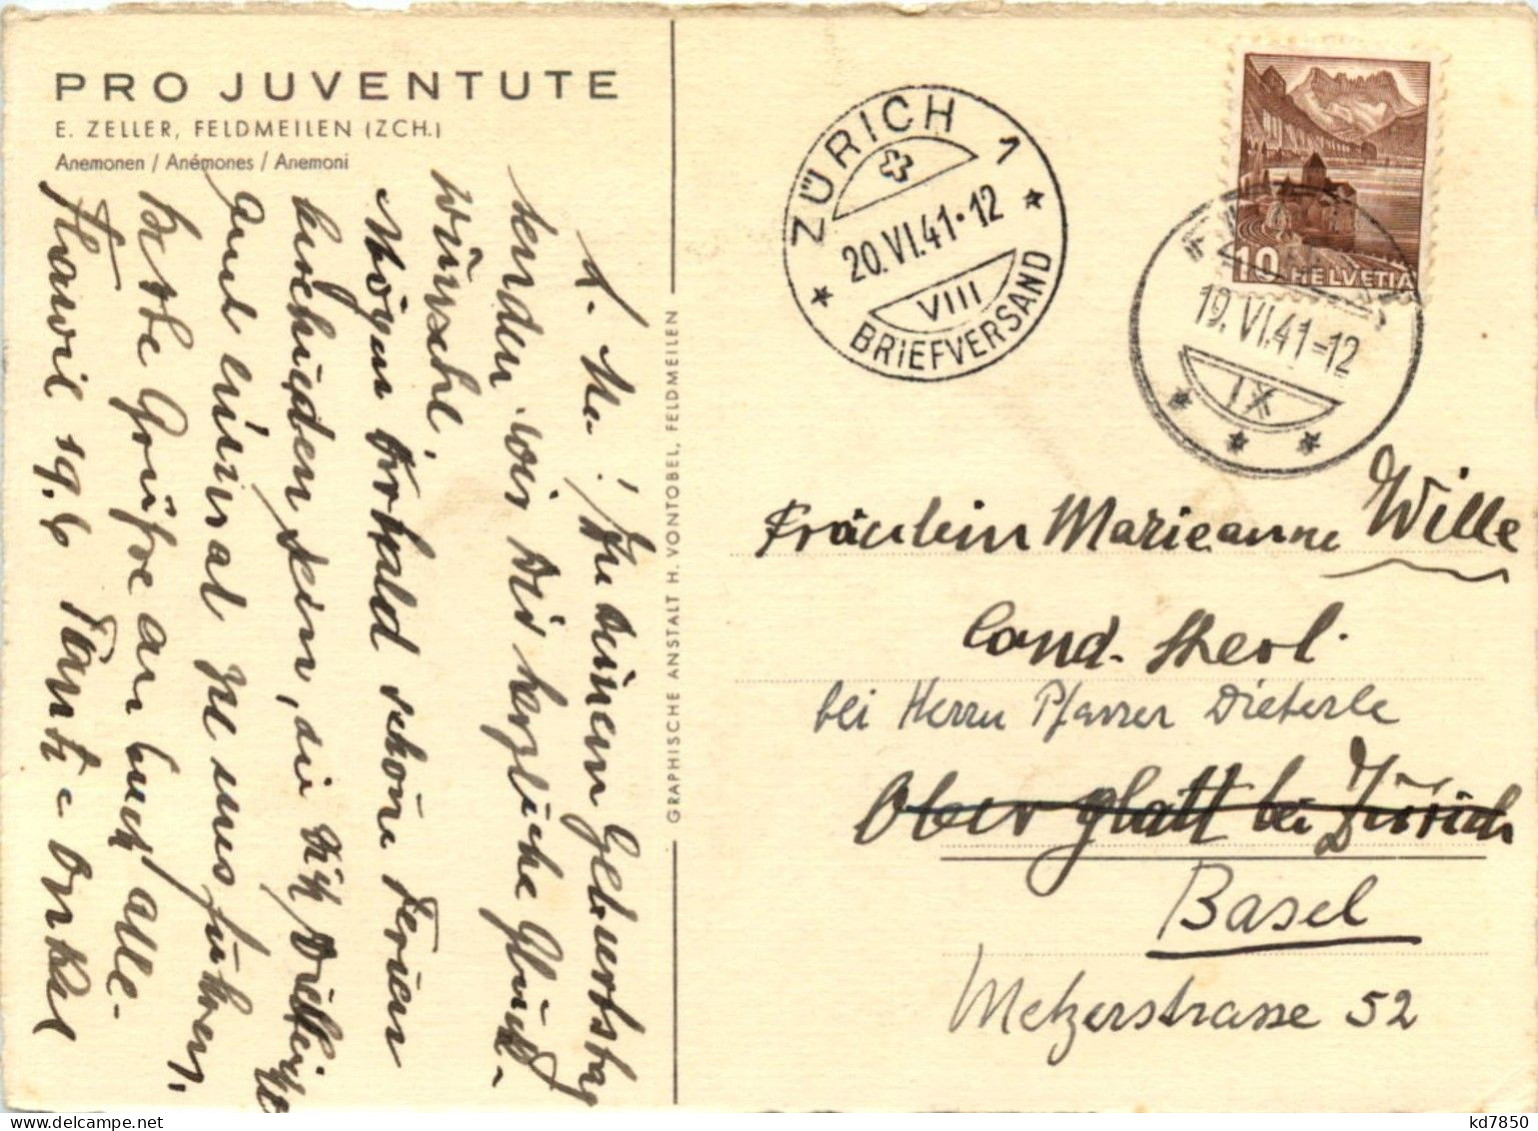 PRO JUVENTUTE
E. ZELLER, FELDMEILEN (ZCH.)
Anemonen / Anémones / Anemoni
! Zu deinem Geburtstag
senden wir Dir herzliche Glück-
wünsche.
Mögen bald schöne Ferien
sein, die Dich
und einmal zu uns führen.
Beste Grüsse an Euch alle.
Flawil 19.6 Tante Onkel
GRAPHISCHE ANSTALT H. VONTOBEL, FELDMEILEN
ZÜRICH 1
20.VI.41·12
VIII
BRIEFVERSAND
10 HELVETIA
19.VI.41-12
IX
Fräulein Marieanne Wille
cand. theol.
bei Herrn Pfarrer Dieterle
Oberglatt bei Zürich
Basel
Metzerstrasse 52
kd7850